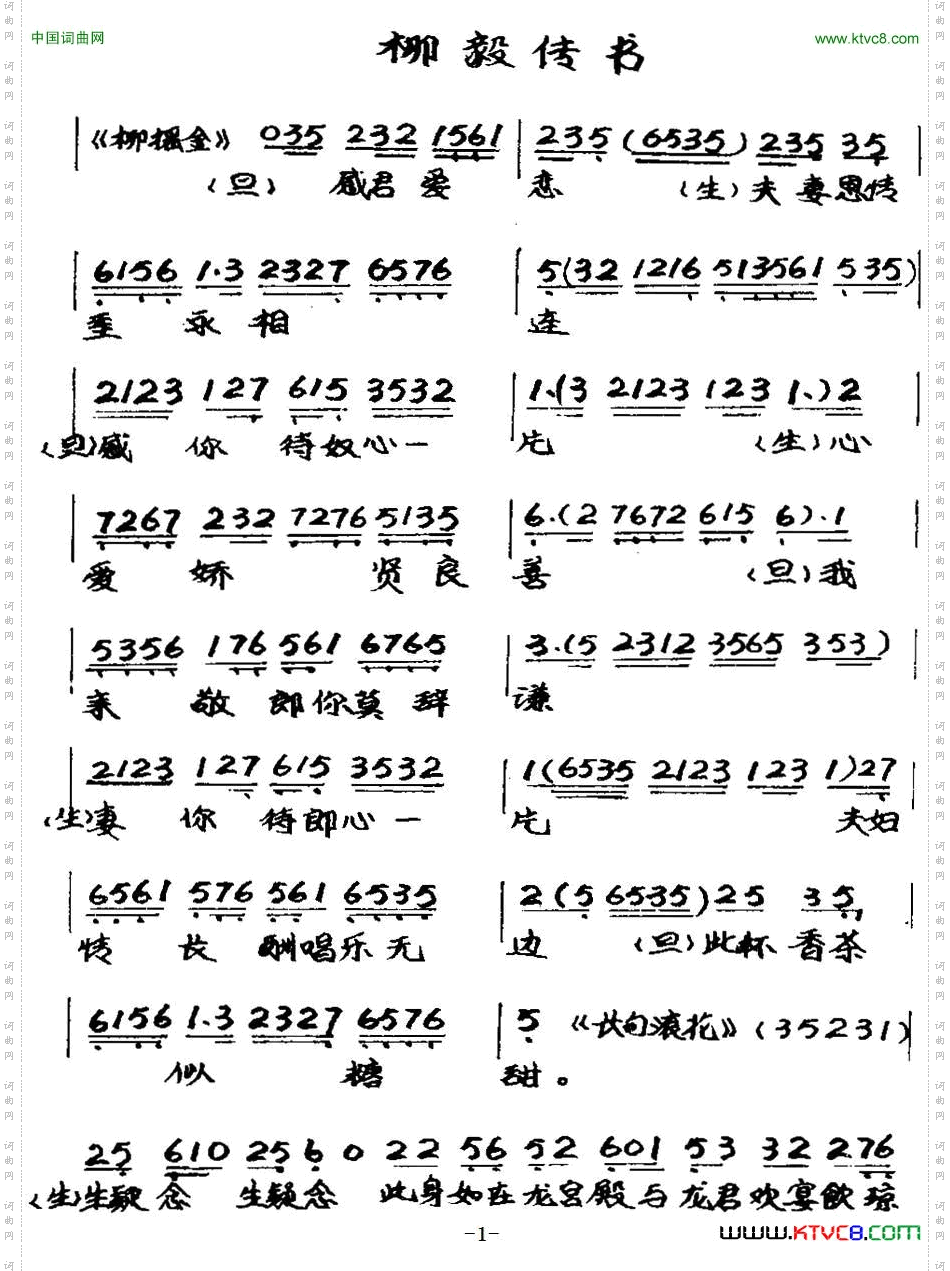 中国词曲网
柳毅传书
www.ktvc8.com
《柳摇金》 035 232 1561 | 235 (6535) 235 35
(旦) 感君爱 恋 (生)夫妻恩情
6156 1·3 2327 6576 | 5(32 1216 513561 535)
重 永相 连
2123 127 615 3532 | 1·(3 2123 123 1·)2
(旦)感 你 待奴心一 片 (生)心
7267 232 7276 5135 | 6·(2 7672 615 6)·1
爱 娇 贤良 善 (旦)我
5356 176 561 6765 | 3·(5 2312 3565 353)
亲 敬 郎你莫辞 谦
2123 127 615 3532 | 1(6535 2123 123 1)27
(生)妻 你 待郎心一 片 夫妇
6561 576 561 6535 | 2(5 6535)25 35
情 长 酬唱乐无 边 (旦)此杯香茶
6156 1·3 2327 6576 | 5 《长句滚花》(35231)
似 糖 甜。
25 610 256 0 22 56 52 601 53 32 2·76
(生)生疑念 生疑念 此身如在龙宫殿与龙君欢宴飲琼
-1-
www.KTVC8.com